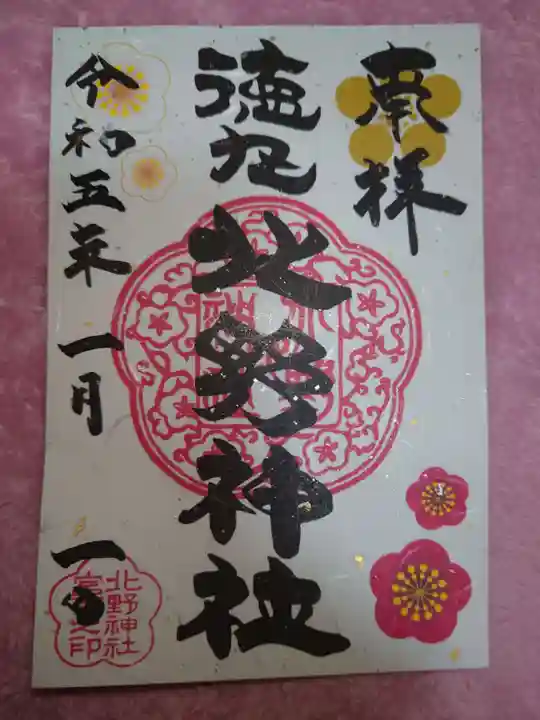 奉拝
徳丸
北野神社
令和五年一月一日
北野神社
宮司之印